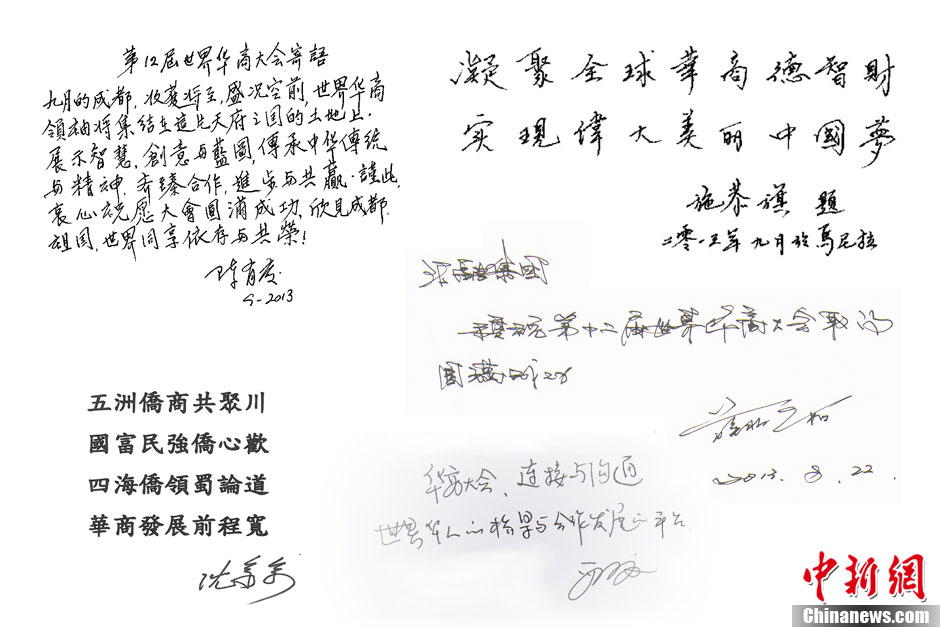 第12届世界华商大会寄語
九月的成都，收蕟将至，盛况空前，世界华商
领袖将集结在這片天府之国的土地上.
展示智慧，創意与藍圖，傳承中华傳统
与精神，齐臻合作，進步与共赢．謹此，
衷心祝愿大會圓滿成功，欣見成都，
祖国，世界同享依存与共榮!
陳育度
9-2013
凝聚全球華商德智財
实現偉大美丽中國夢
施恭旗 題
二零一三年九月於馬尼拉
第十二届世界华商大会取得
圆满成功
2013. 8. 22
五洲僑商共聚川
國富民強僑心歡
四海僑領蜀論道
華商發展前程寬
华商大会、连接与沟通
世界华人的桥梁与合作发展的平台
中新網
Chinanews.com